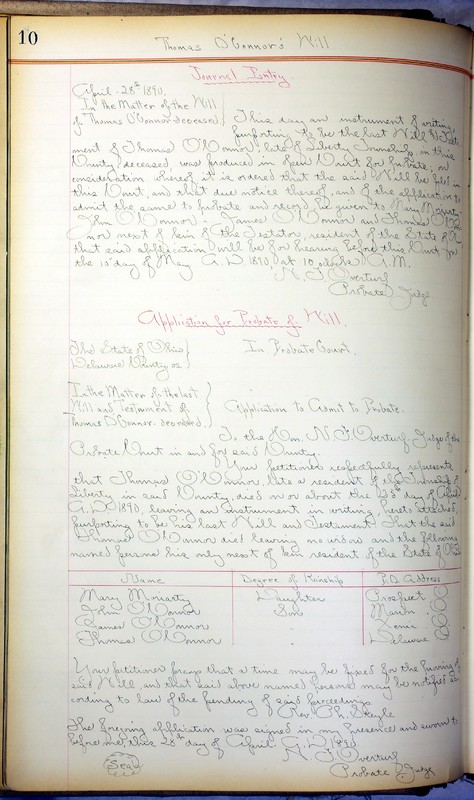 10
Thomas O'Connor's Will
Journal Entry.
April 28th 1890.
In the Matter of the Will
of Thomas O'Connor deceased.
This day an instrument of writing,
purporting to be the last Will & Testa-
ment of Thomas O'Connor, late of Liberty Township, in this
County, deceased, was produced in open Court for probate, on
consideration whereof it is ordered that the said Will be filed in
this Court, and that due notice thereof, and of the application to
admit the same to probate and record, be given to Mary Moriarty,
John O'Connor, James O'Connor and Thomas O'Con-
nor next of kin of the Testator, resident of the State of O
that said application will be for hearing before this Court on
the 10th day of May A.D. 1890 at 10 o'clock A.M.
N. F. Overturf
Probate Judge
Application for Probate of Will.
The State of Ohio
Delaware County ss.
In Probate Court.
In the Matter of the last
Will and Testament of
Thomas O'Connor deceased.
Application to Admit to Probate.
To the Hon. N. F. Overturf Judge of the
Probate Court in and for said County.
Your petitioner respectfully represents
that Thomas O'Connor, late a resident of the Township of
Liberty in said County, died on or about the 23rd day of April
A.D. 1890, leaving an instrument in writing, hereto attached,
purporting to be his last Will and Testament. That the said
Thomas O'Connor died leaving no widow and the following
named persons his only next of kin resident of the State of Ohio
Name Degree of Kinship P.O. Address
Mary Moriarty Daughter Prospect O
John O'Connor Son Marion O
James O'Connor " Xenia O
Thomas O'Connor " Delaware O
Your petitioner prays that a time may be fixed for the proving of
said Will, and that said above named persons may be notified ac
cording to law of the pendency of said proceedings.
Rev. Ph.
The forgoing application was signed in my presence and sworn to
before me, this 28th day of April A.D. 1890
N. F. Overturf
Seal
Probate Judge